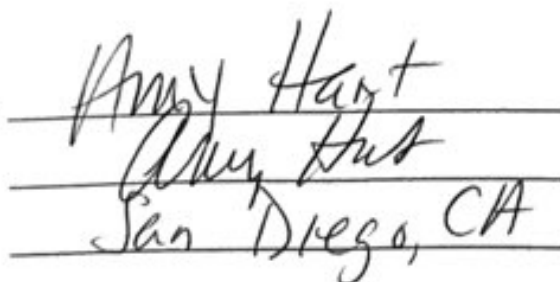 Amy Hart
Amy Hart
San Diego, CA